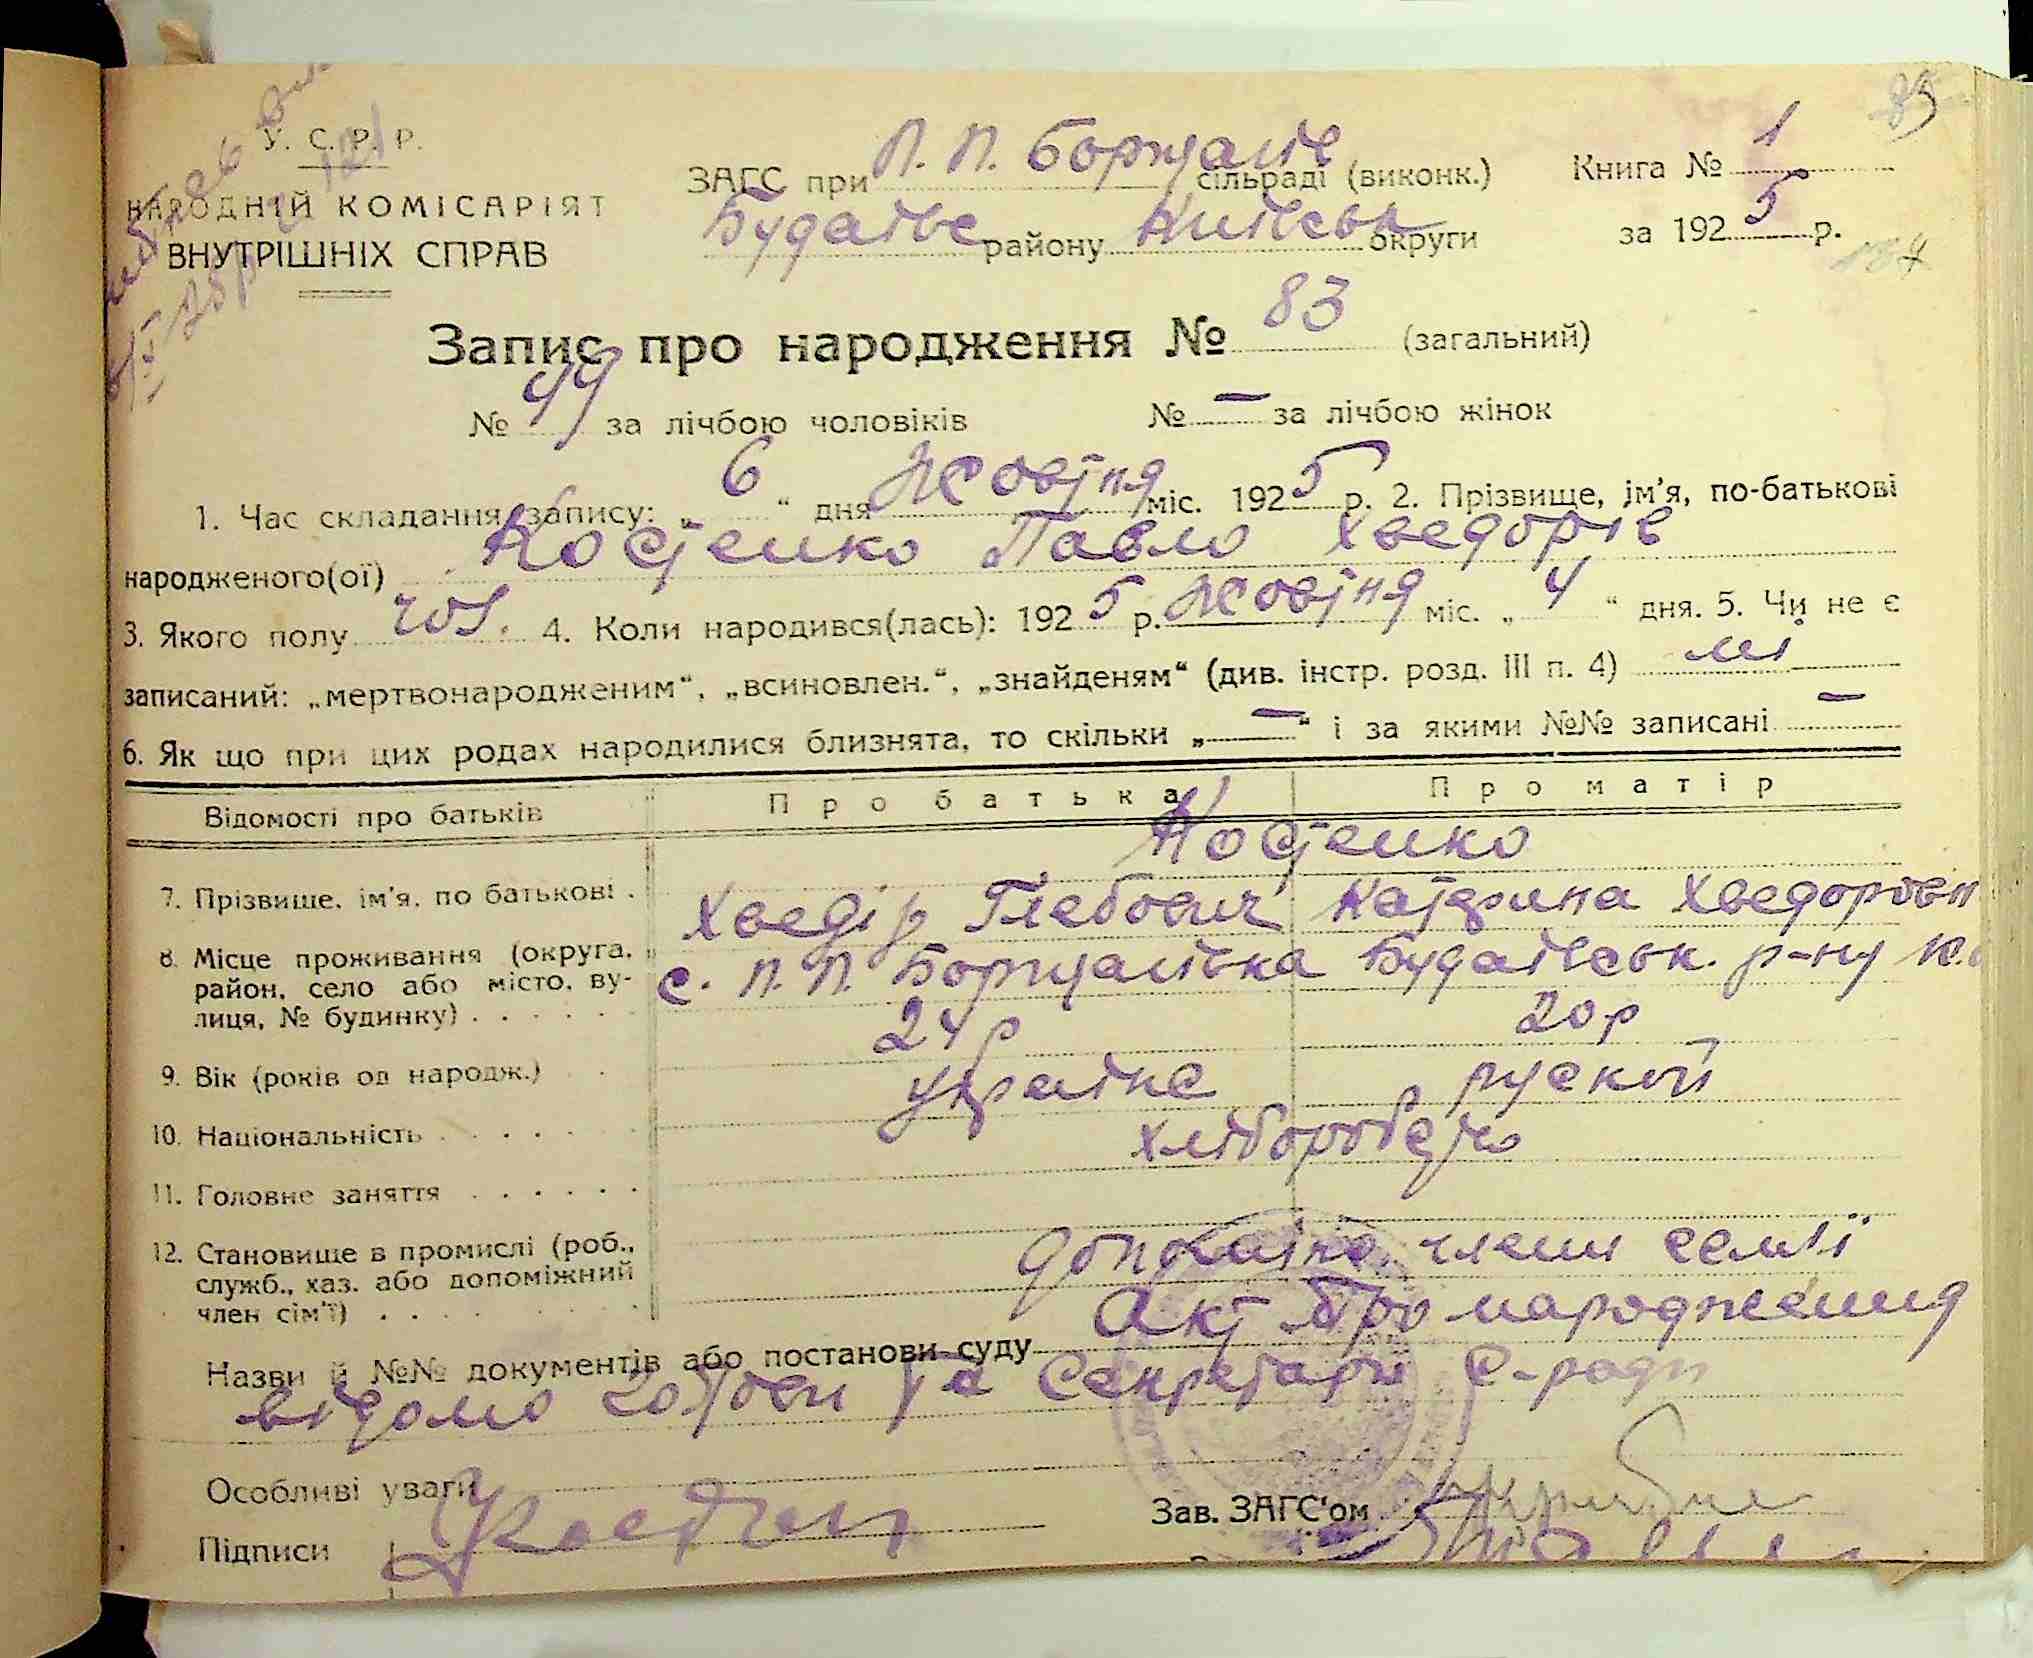 83
У. С. Р. Р.
НАРОДНІЙ КОМІСАРІЯТ
ВНУТРІШНІХ СПРАВ
ЗАГС при П. П. Борщагів сільраді (виконк.)
Будаївс району Київськ округи
Книга № 1
за 1925 р.
184
Запис про народження № 83 (загальний)
№ 49 за лічбою чоловіків № — за лічбою жінок
1. Час складання запису: „6“ дня Жовтня міс. 1925 р. 2. Прізвище, ім'я, по-батькові
народженого(ої) Костенко Павло Хведорів
3. Якого полу чол. 4. Коли народився(лась): 1925 р. Жовтня міс. „4“ дня. 5. Чи не є
записаний: „мертвонародженим“, „всиновлен.“, „знайденям“ (див. інстр. розд. III п. 4) ні
6. Як що при цих родах народилися близнята, то скільки „—“ і за якими №№ записані —
Відомості про батьків Про батька Про матір
Костенко
7. Прізвище, ім'я, по батькові . Хведір Глебович Катерина Хведоровн
8. Місце проживання (округа, район, село або місто, вулиця, № будинку) . . . . . . с. П. П. Борщагівка Будаївськ. р-ну К.
9. Вік (років од народж.) . . 24 р 20 р
10. Національність . . . . . . українс руской
11. Головне заняття . . . . . . хліборобство
12. Становище в промислі (роб., служб., хаз. або допоміжний член сім'ї) . . . . допоміжн. члени семьї
Назви й №№ документів або постанови суду Акт про народження
відомо голови та секретаря с-ради
Особливі уваги
Підписи Костен
Зав. ЗАГС'ом